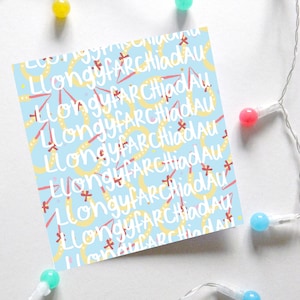 LLONGYFARCHIADAU
LLONGYFARCHIADAU
LLONGYFARCHIADAU
LLONGYFARCHIADAU
LLONGYFARCHIADAU
LLONGYFARCHIADAU
LLONGYFARCHIADAU
LLONGYFARCHIADAU
LLONGYFARCHIADAU
LLONGYFARCHIADAU